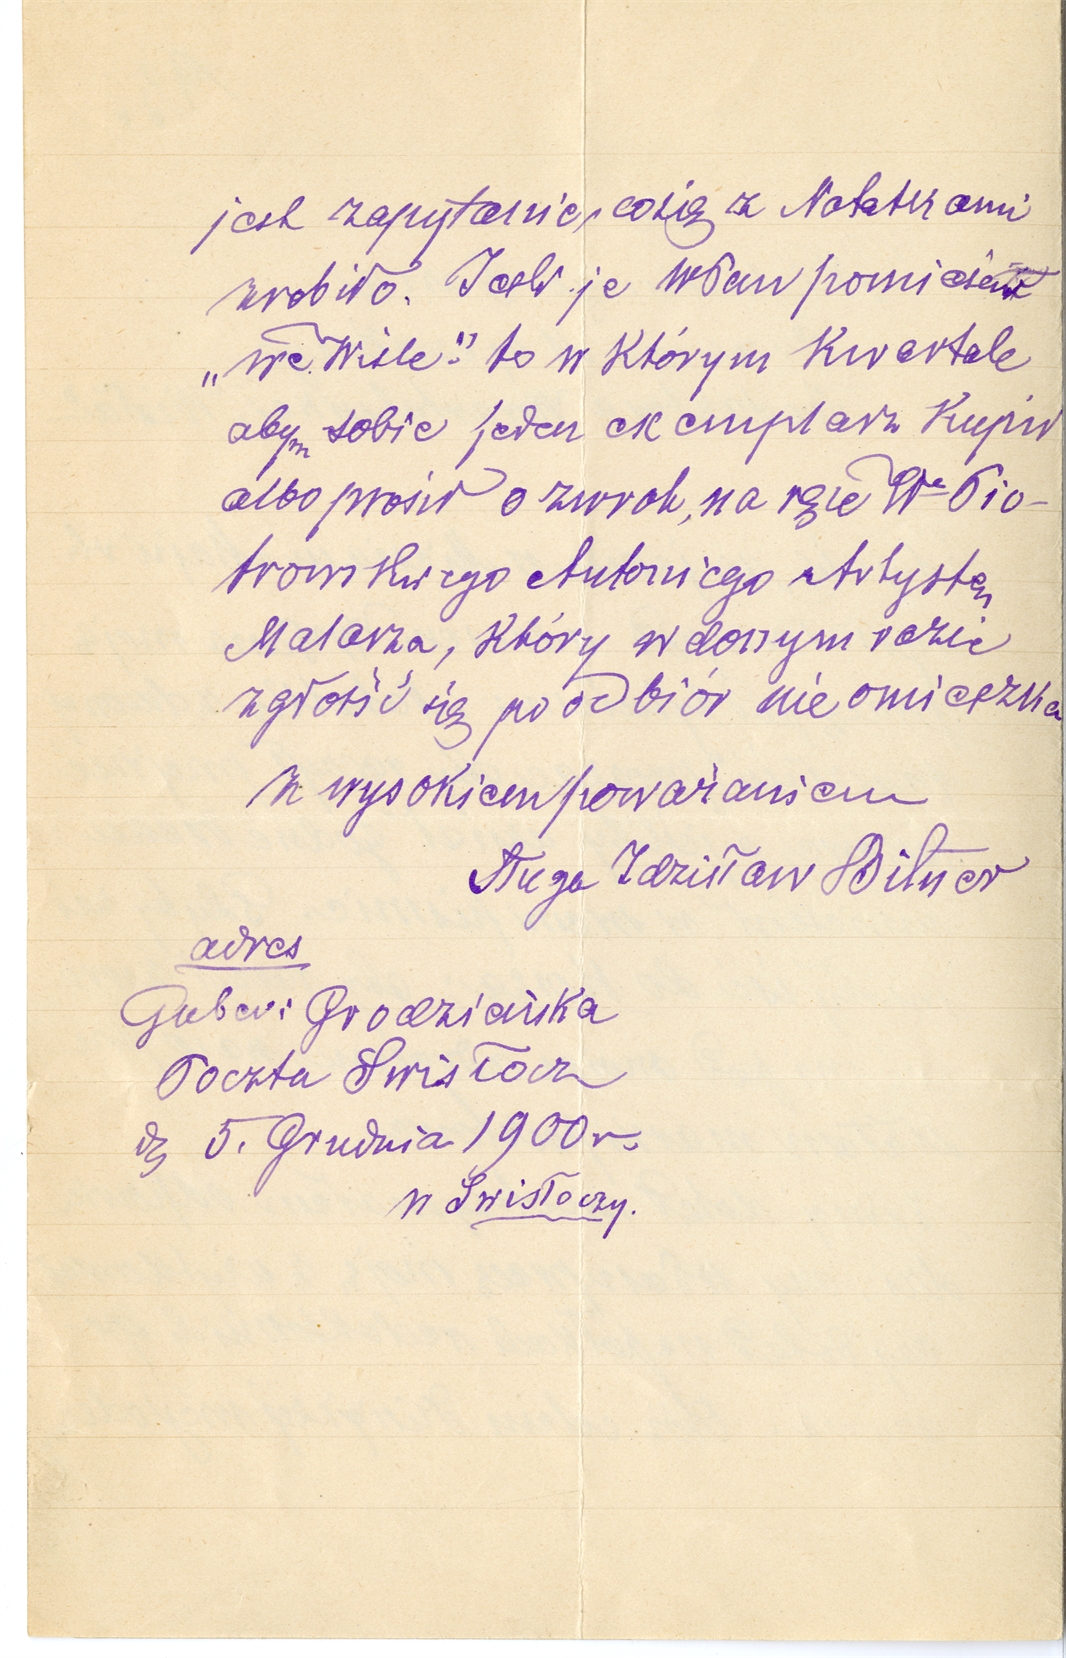 jest zapytanie, co się z Notatkami
zrobiło. Jeśli je WPan pomieścił
„we Wiśle” to w którym Kwartale
abym sobie jeden exemplarz Kupił
albo prosił o zwrot, na ręce Wgo Pio-
trowskiego Antoniego Artystę
Malarza, Który w danym razie
zgłosić się po odbiór nie omieszka
z wysokiem poważaniem
Sługa Zdzisław Bitner
adres
Guber: Grodzieńska
Poczta Swisłocz
d 5. Grudnia 1900 r.
w Swisłoczy.